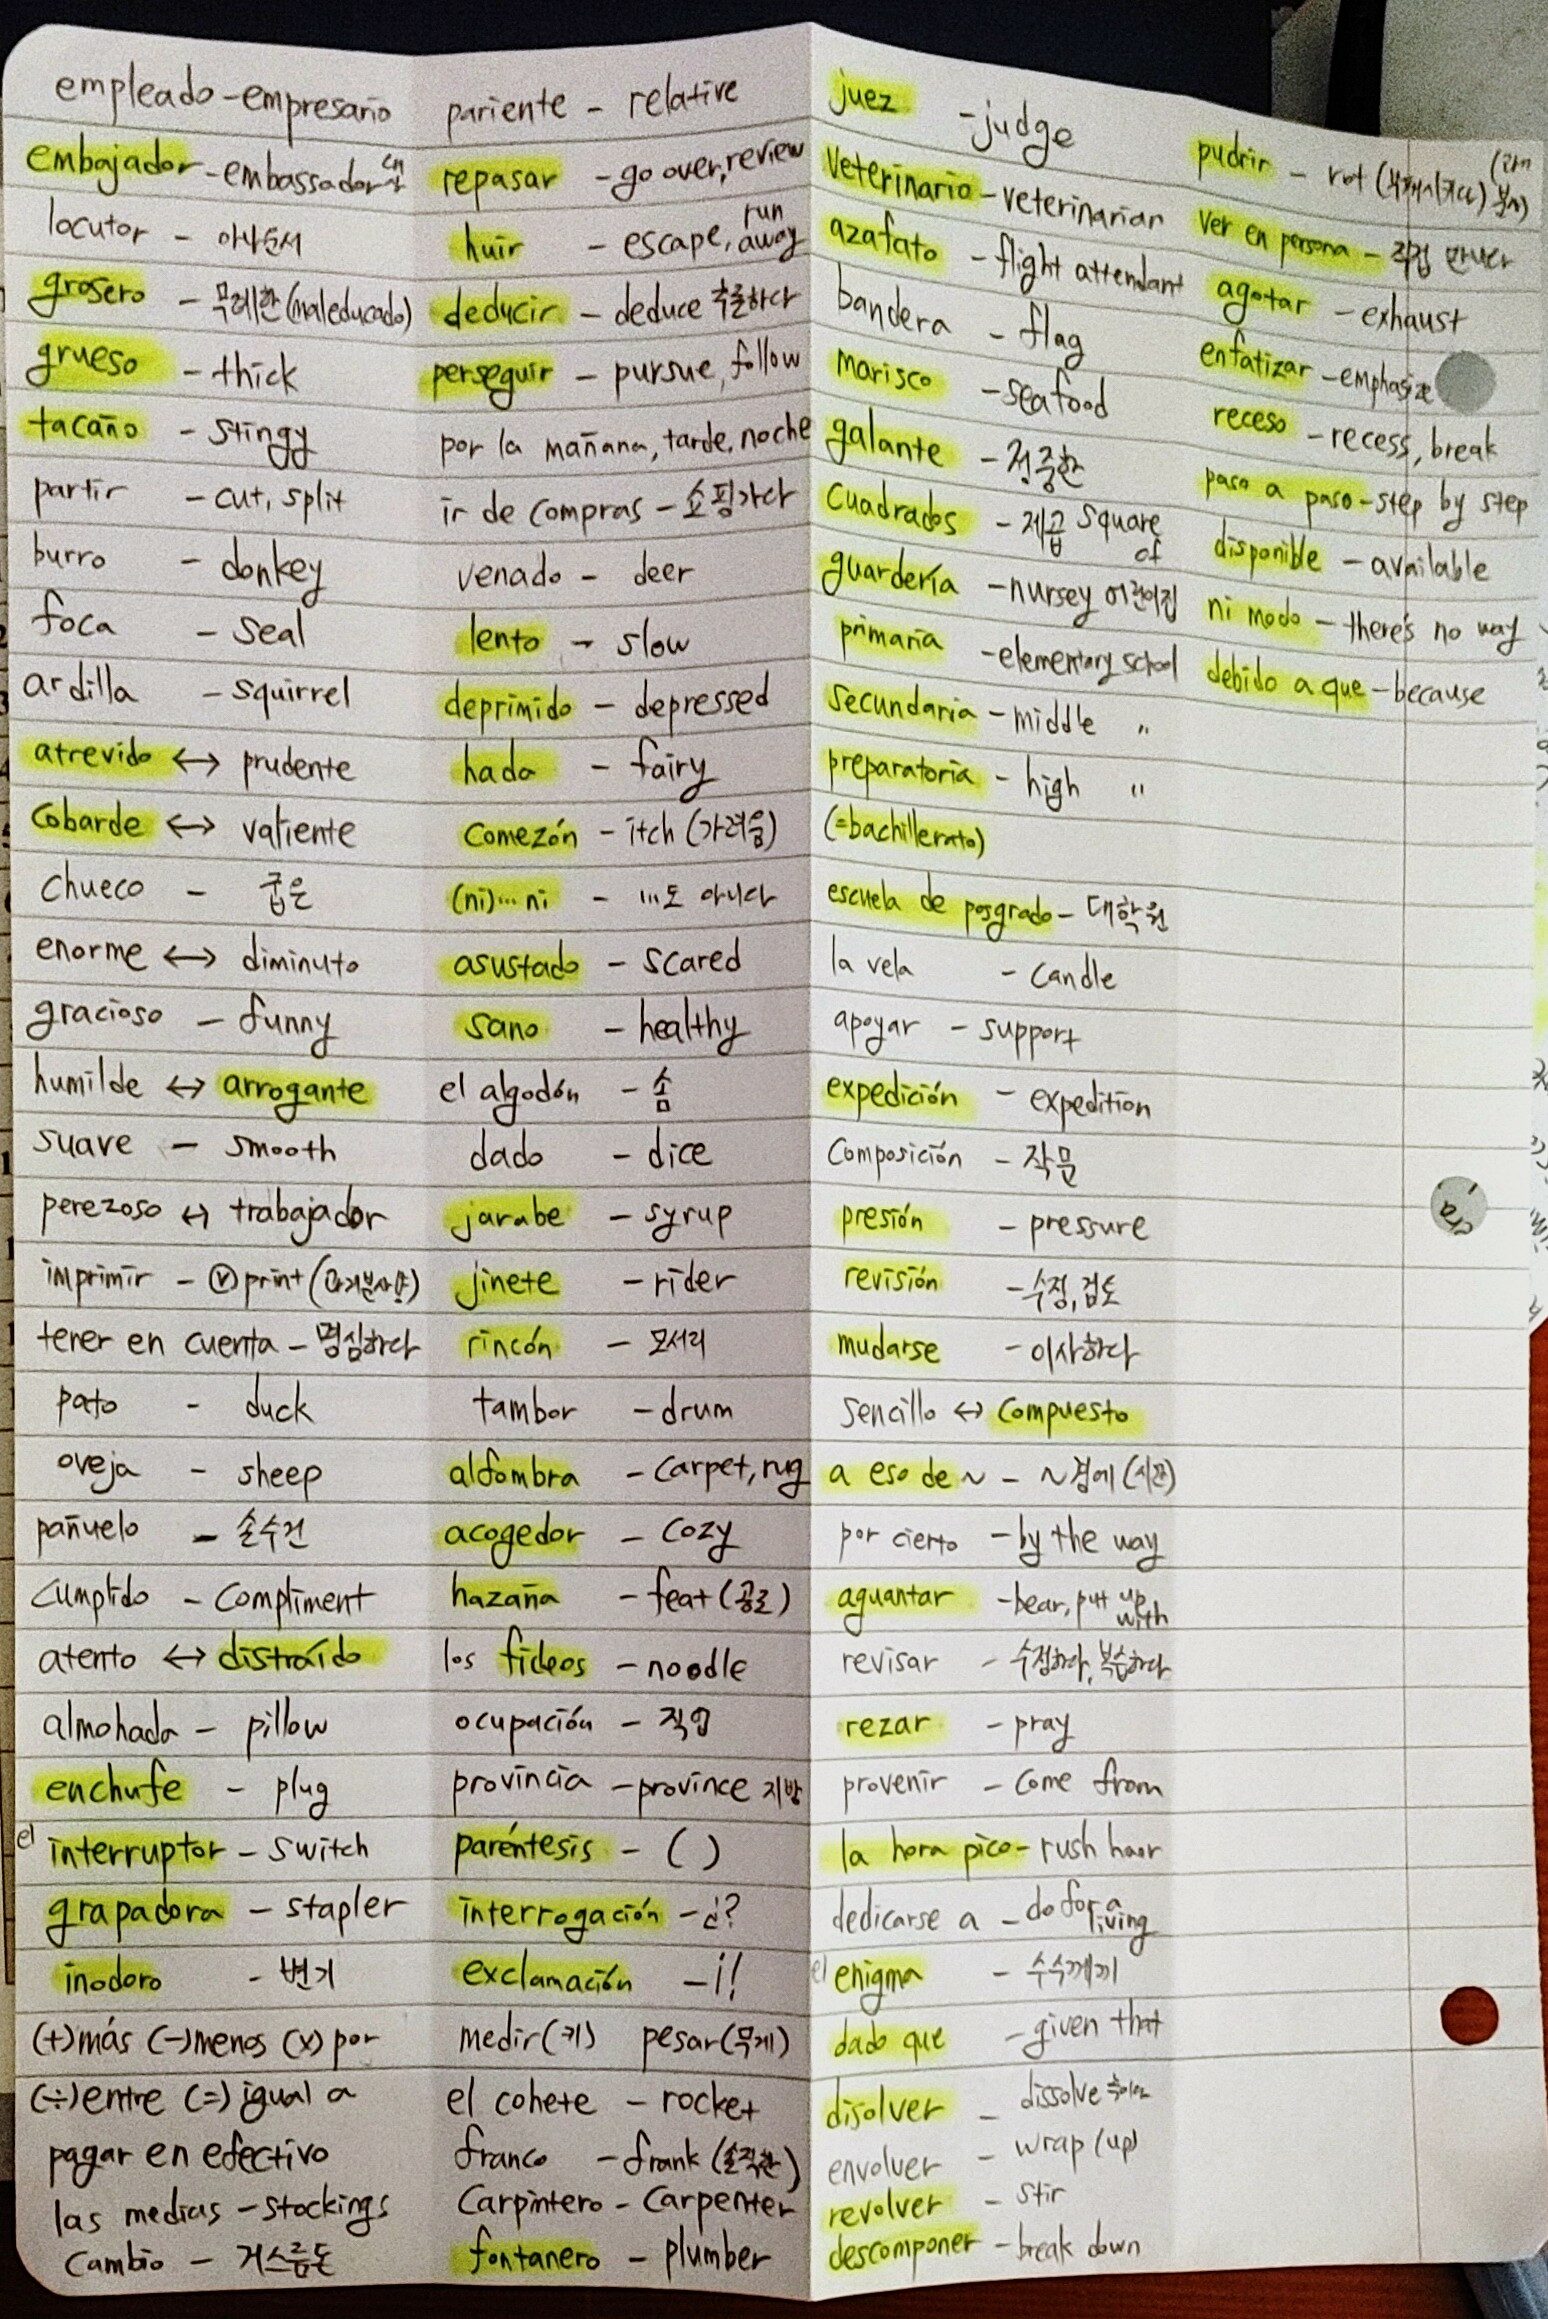 empleado - empresario
embajador - embassador
locutor - 아나운서
grosero - 무례한 (maleducado)
grueso - thick
tacaño - stingy
partir - cut, split
burro - donkey
foca - seal
ardilla - squirrel
atrevido ↔ prudente
cobarde ↔ valiente
chueco - 굽은
enorme ↔ diminuto
gracioso - funny
humilde ↔ arrogante
suave - smooth
perezoso ↔ trabajador
imprimir - ⓥ print (과거분사形)
tener en cuenta - 명심하다
pato - duck
oveja - sheep
pañuelo - 손수건
cumplido - compliment
atento ↔ distraído
almohada - pillow
enchufe - plug
el interruptor - switch
grapadora - stapler
inodoro - 변기
(+)más (-)menos (x) por
(÷)entre (=) igual a
pagar en efectivo
las medias - stockings
cambio - 거스름돈
pariente - relative
repasar - go over, review
huir - escape, run away
deducir - deduce 추론하다
perseguir - pursue, follow
por la mañana, tarde, noche
ir de compras - 쇼핑가다
venado - deer
lento - slow
deprimido - depressed
hada - fairy
comezón - itch (가려움)
(ni)...ni - ...도 아니다
asustado - scared
sano - healthy
el algodón - 솜
dado - dice
jarabe - syrup
jinete - rider
rincón - 모서리
tambor - drum
alfombra - carpet, rug
acogedor - cozy
hazaña - feat (공로)
los fideos - noodle
ocupación - 직업
provincia - province 지방
paréntesis - ( )
interrogación - ¿?
exclamación - ¡!
medir(키) pesar(무게)
el cohete - rocket
franco - frank (솔직한)
carpintero - carpenter
fontanero - plumber
juez - judge
veterinario - veterinarian
azafato - flight attendant
bandera - flag
marisco - seafood
galante - 정중한
cuadrados - 제곱 square of
guardería - nursey 어린이집
primaria - elementary school
secundaria - middle "
preparatoria - high "
(=bachillerato)
escuela de posgrado - 대학원
la vela - candle
apoyar - support
expedición - expedition
composición - 작문
presión - pressure
revisión - 수정, 검토
mudarse - 이사하다
sencillo ↔ compuesto
a eso de ~ - ~경에 (시간)
por cierto - by the way
aguantar - bear, put up with
revisar - 수정하다, 복습하다
rezar - pray
provenir - come from
la hora pico - rush hour
dedicarse a - do for a living
el enigma - 수수께끼
dado que - given that
disolver - dissolve
envolver - wrap (up)
revolver - stir
descomponer - break down
pudrir - rot (부패시키다)
ver en persona - 직접 만나다
agotar - exhaust
enfatizar - emphasize
receso - recess, break
paso a paso - step by step
disponible - available
ni modo - there's no way
debido a que - because